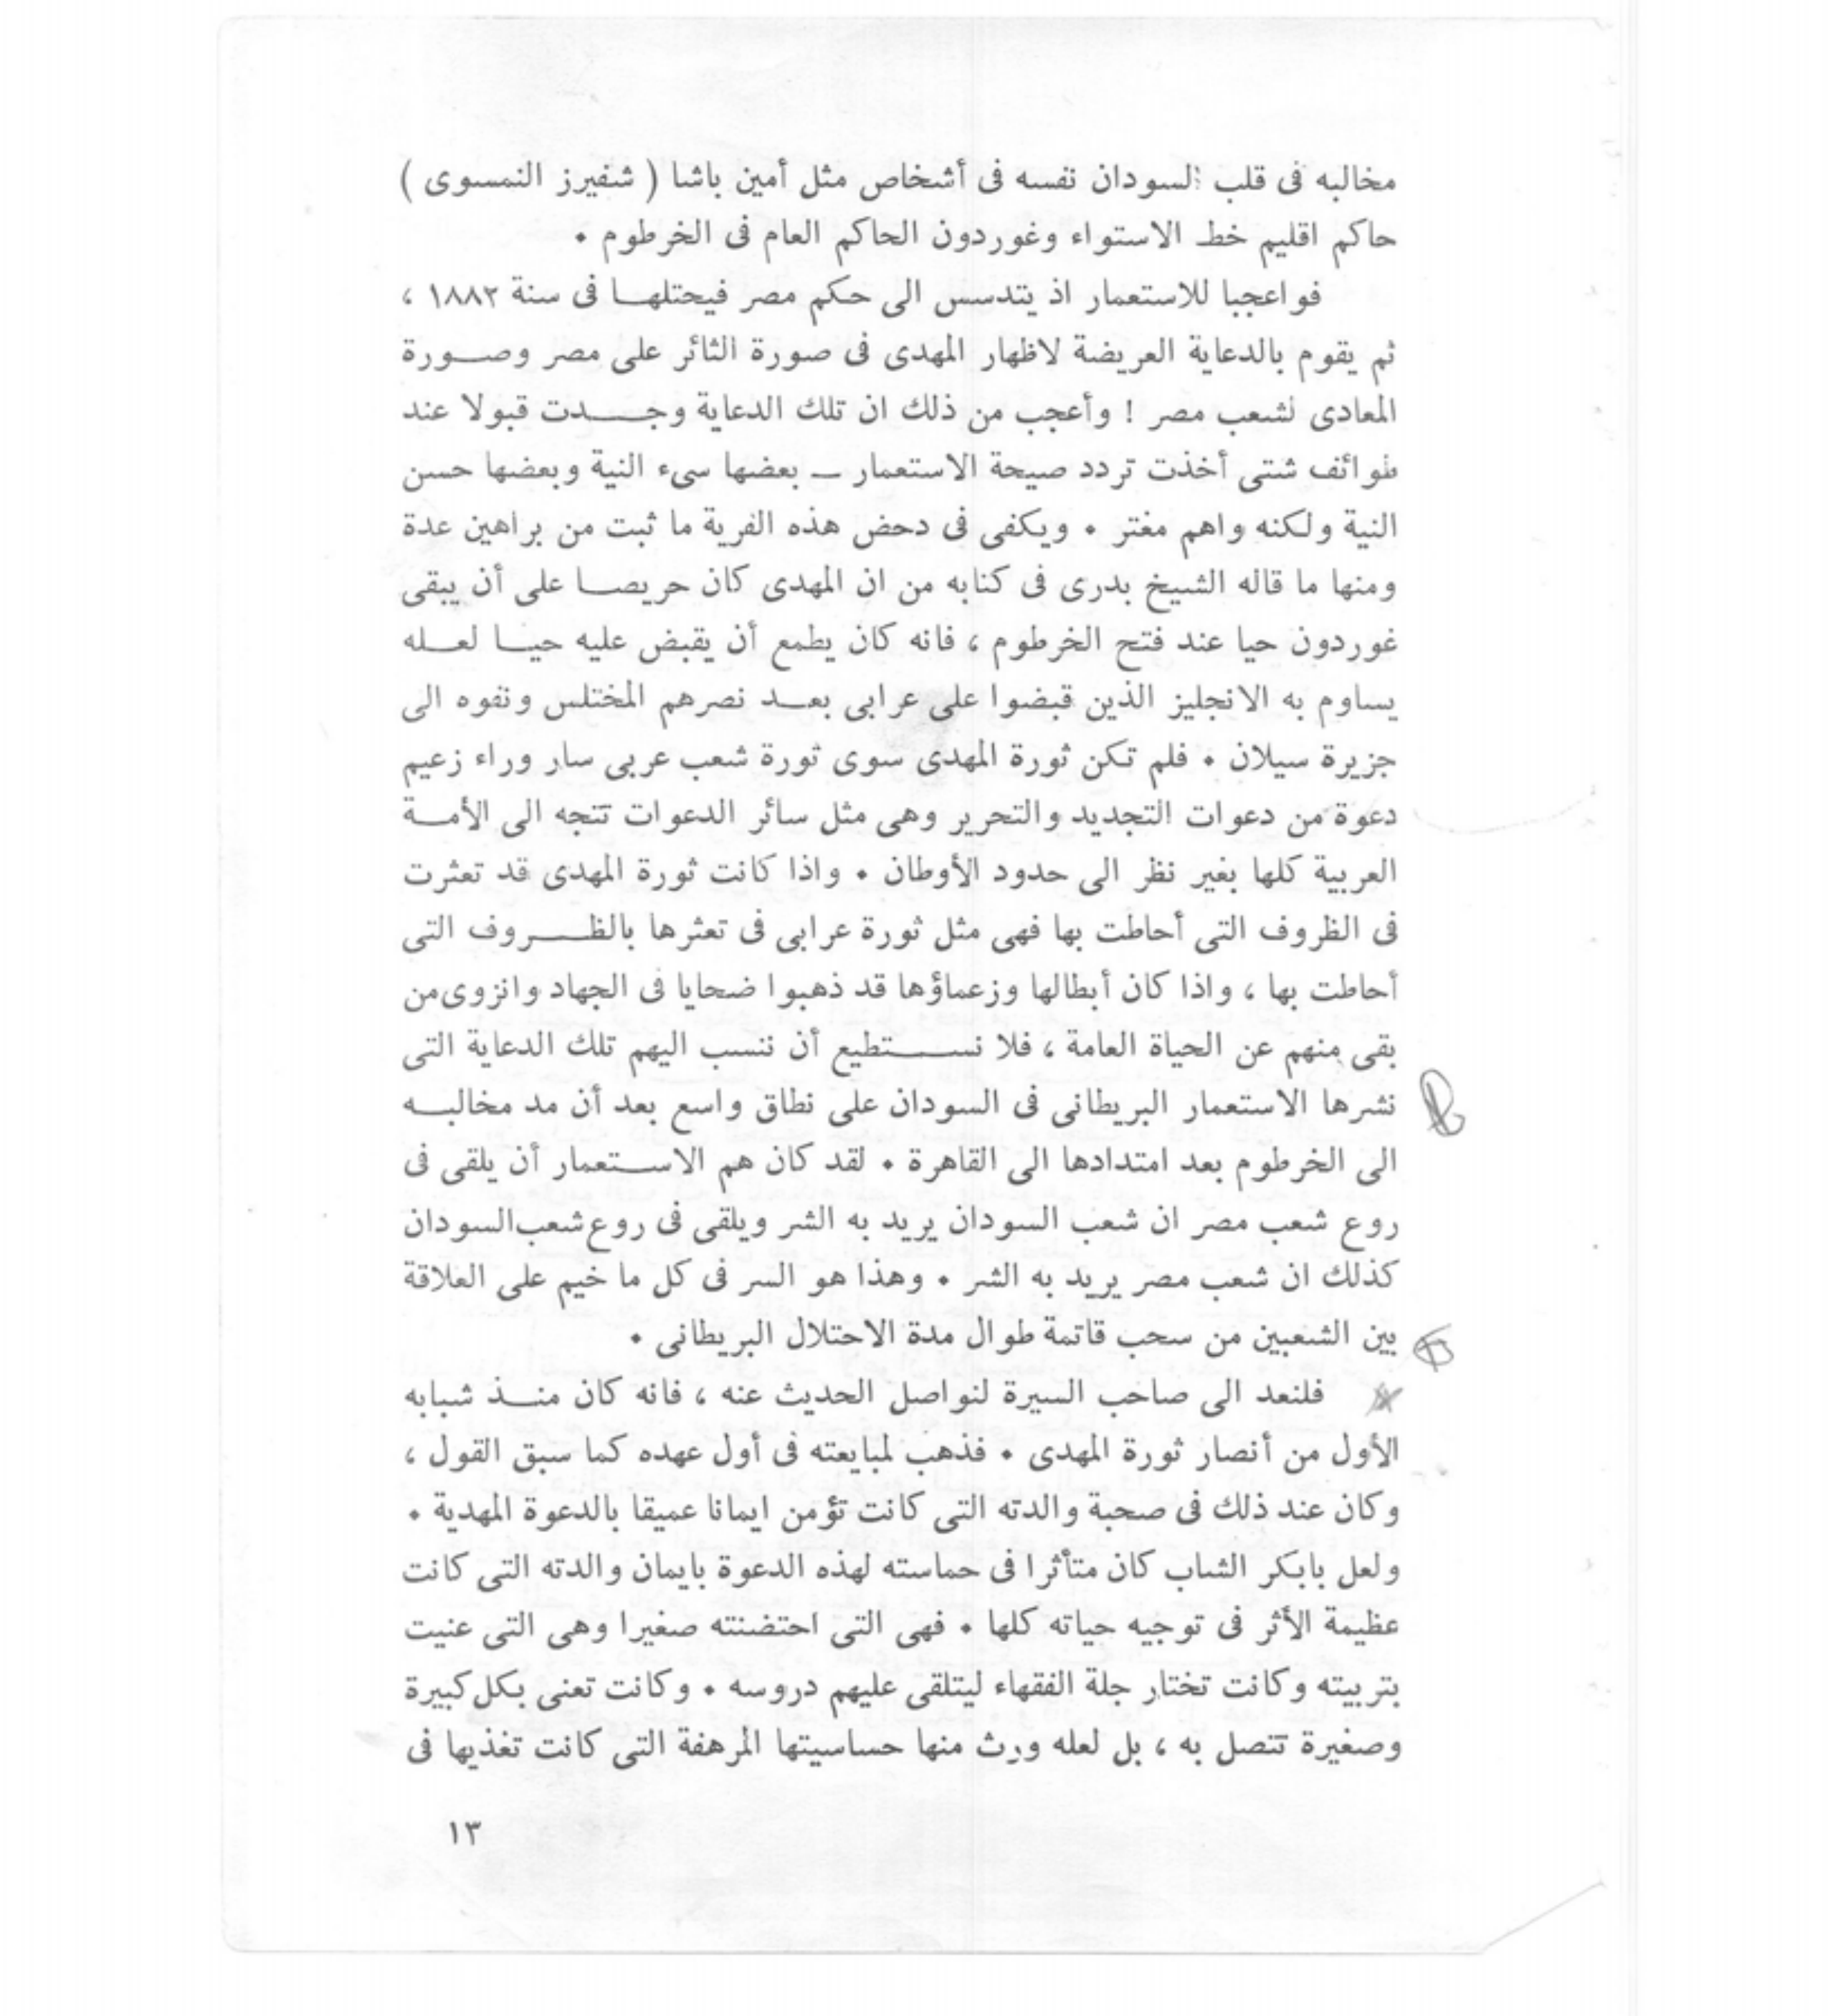 مخالبه فى قلب السودان نفسه فى أشخاص مثل أمين باشا ( شنفيرز النمسوى )
حاكم اقليم خط الاستواء وغوردون الحاكم العام فى الخرطوم .
فواعجبا للاستعمار اذ يتدسس الى حكم مصر فيحتلهـا فى سنة ١٨٨٢ ،
ثم يقوم بالدعاية العريضة لاظهار المهدى فى صورة الثائر على مصر وصورة
المعادى لشعب مصر ! وأعجب من ذلك ان تلك الدعاية وجدت قبولا عند
طوائف شتى أخذت تردد صيحة الاستعمار ــ بعضها سىء النية وبعضها حسن
النية ولكنه واهم مغتر . ويكفى فى دحض هذه الفرية ما ثبت من براهين عدة
ومنها ما قاله الشيخ بدرى فى كتابه من ان المهدى كان حريصا على أن يبقى
غوردون حيا عند فتح الخرطوم ، فانه كان يطمع أن يقبض عليه حيا لعله
يساوم به الانجليز الذين قبضوا على عرابى بعد نصرهم المختلس ونفوه الى
جزيرة سيلان . فلم تكن ثورة المهدى سوى ثورة شعب عربى سار وراء زعيم
دعوة من دعوات التجديد والتحرير وهى مثل سائر الدعوات تتجه الى الأمة
العربية كلها بغير نظر الى حدود الأوطان . واذا كانت ثورة المهدى قد تعثرت
فى الظروف التى أحاطت بها فهى مثل ثورة عرابى فى تعثرها بالظروف التى
أحاطت بها ، واذا كان أبطالها وزعماؤها قد ذهبوا ضحايا فى الجهاد وانزوى من
بقى منهم عن الحياة العامة ، فلا نستطيع أن ننسب اليهم تلك الدعاية التى
نشرها الاستعمار البريطانى فى السودان على نطاق واسع بعد أن مد مخالبه
الى الخرطوم بعد امتدادها الى القاهرة . لقد كان هم الاستعمار أن يلقى فى
روع شعب مصر ان شعب السودان يريد به الشر ويلقى فى روع شعب السودان
كذلك ان شعب مصر يريد به الشر . وهذا هو السر فى كل ما خيم على العلاقة
بين الشعبين من سحب قاتمة طوال مدة الاحتلال البريطانى .
فلنعد الى صاحب السيرة لنواصل الحديث عنه ، فانه كان منذ شبابه
الأول من أنصار ثورة المهدى . فذهب لمبايعته فى أول عهده كما سبق القول ،
وكان عند ذلك فى صحبة والدته التى كانت تؤمن ايمانا عميقا بالدعوة المهدية .
ولعل بابكر الشاب كان متأثرا فى حماسته لهذه الدعوة بايمان والدته التى كانت
عظيمة الأثر فى توجيه حياته كلها . فهى التى احتضنته صغيرا وهى التى عنيت
بتربيته وكانت تختار جلة الفقهاء ليتلقى عليهم دروسه . وكانت تعنى بكل كبيرة
وصغيرة تتصل به ، بل لعله ورث منها حساسيتها المرهفة التى كانت تغذيها فى
١٣